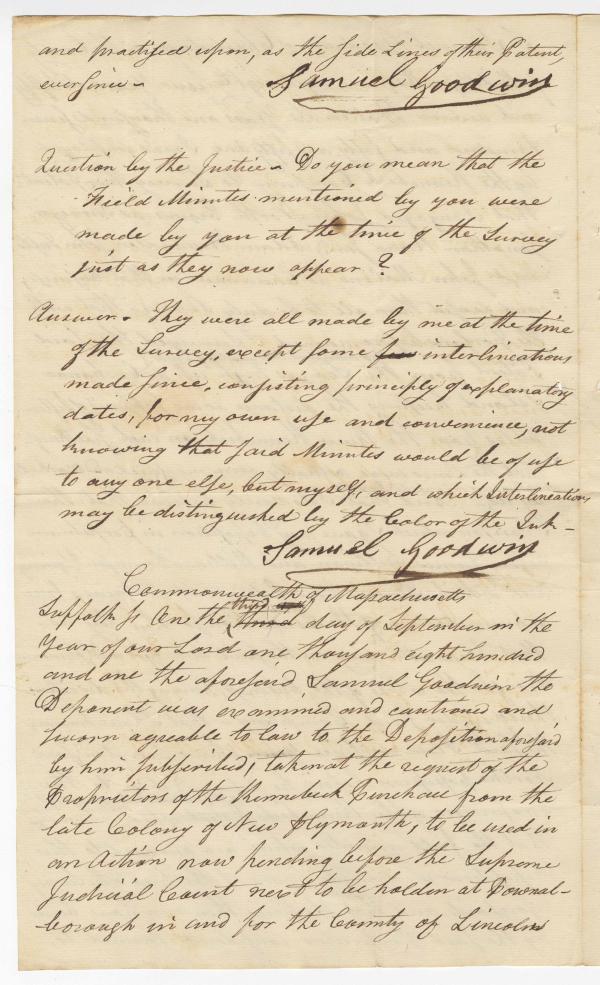 and practised upon, as the side Lines of their Patent,
ever since -
Samuel Goodwin
Question by the Justice - Do you mean that the
Field Minutes mentioned by you were
made by you at the time of the Survey
just as they now appear?
Answer. They were all made by me at the time
of the Survey, except some few interlineations
made since, consisting principly of explanatory
dates, for my own use and convenience, not
knowing that said Minutes would be of use
to any one else, but myself, and which Interlineations
may be distinguished by the Color of the Ink -
Samuel Goodwin
Commonwealth of Massachusetts
third
Suffolk Ss On the third day of September in the
Year of our Lord one thousand eight hundred
and one the aforesaid Samuel Goodwin the
Deponent was examined and cautioned and
sworn agreable to law to the Deposition aforesaid
by him subscribed, taken at the request of the
Proprietors of the Kennebeck Purchase from the
late Colony of New Plymouth, to be used in
an Action now pending before the Supreme
Judicial Court next to be holden at Pownal-
borough in and for the County of Lincoln